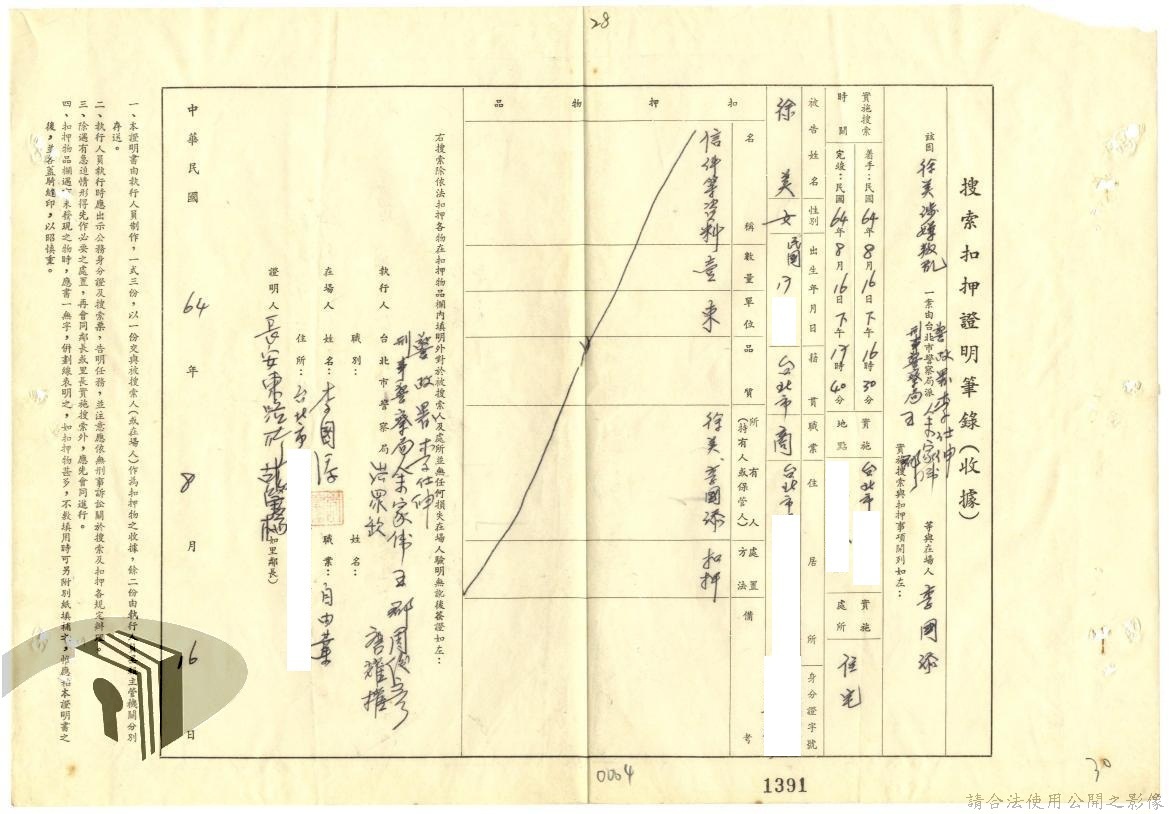 28
搜索扣押證明筆錄(收據)
茲因 徐美涉嫌叛亂 一案由台北市警察局派 警政署 李仕伸 刑事警察局 余家偉 王郡 等與在場人 李國添
實施搜索與扣押事項開列如左:
實施搜索時間 着手:民國64年8月16日下午16時30分 實施地點 台北市 實施處所 住宅
完竣:民國64年8月16日下午17時40分
被告姓名 性別 出生年月日 籍貫 職業 住居所 身分證字號
徐美 女 民國17 台北市 商 台北市
扣押物品
名稱 數量 單位 品質 所有人(持有人或保管人) 處置方法 備考
信件等資料 壹 束 徐美、李國添 扣押
右搜索除依法扣押各物在扣押物品欄內填明外對於被搜索人以及處所並無任何損失在場人驗明無訛後簽證如左:
執行人 台北市警察局 職別: 姓名:
警政署 李仕伸
刑事警察局 余家偉 王郡 周俊
洪眾欽 唐雄權
在場人 姓名:李國添 職業:自由業
住所:台北市
證明人 長安東路 (如里鄰長)
中華民國 64 年 8 月 16 日
一、本證明書由執行人員制作,一式三份,以一份交與被搜索人(或在場人)作為扣押物之收據,餘二份由執行人員呈報主管機關分別
存送。
二、執行人員執行時應出示公務身分證及搜索票,告明任務,並注意應依無刑事訴訟關於搜索及扣押各規定辦理。
三、除遇有急迫情形得先作必要之處置,再會同鄰長或里長實施搜索外,應先會同進行。
四、扣押物品欄遇有未發現之物時,應書一無字,併劃線表明之,如扣押物甚多,不敷填用時可另附別紙填補之,惟應粘本證明書之
後,並各蓋騎縫印,以昭慎重。
0004
1391
30
請合法使用公開之影像